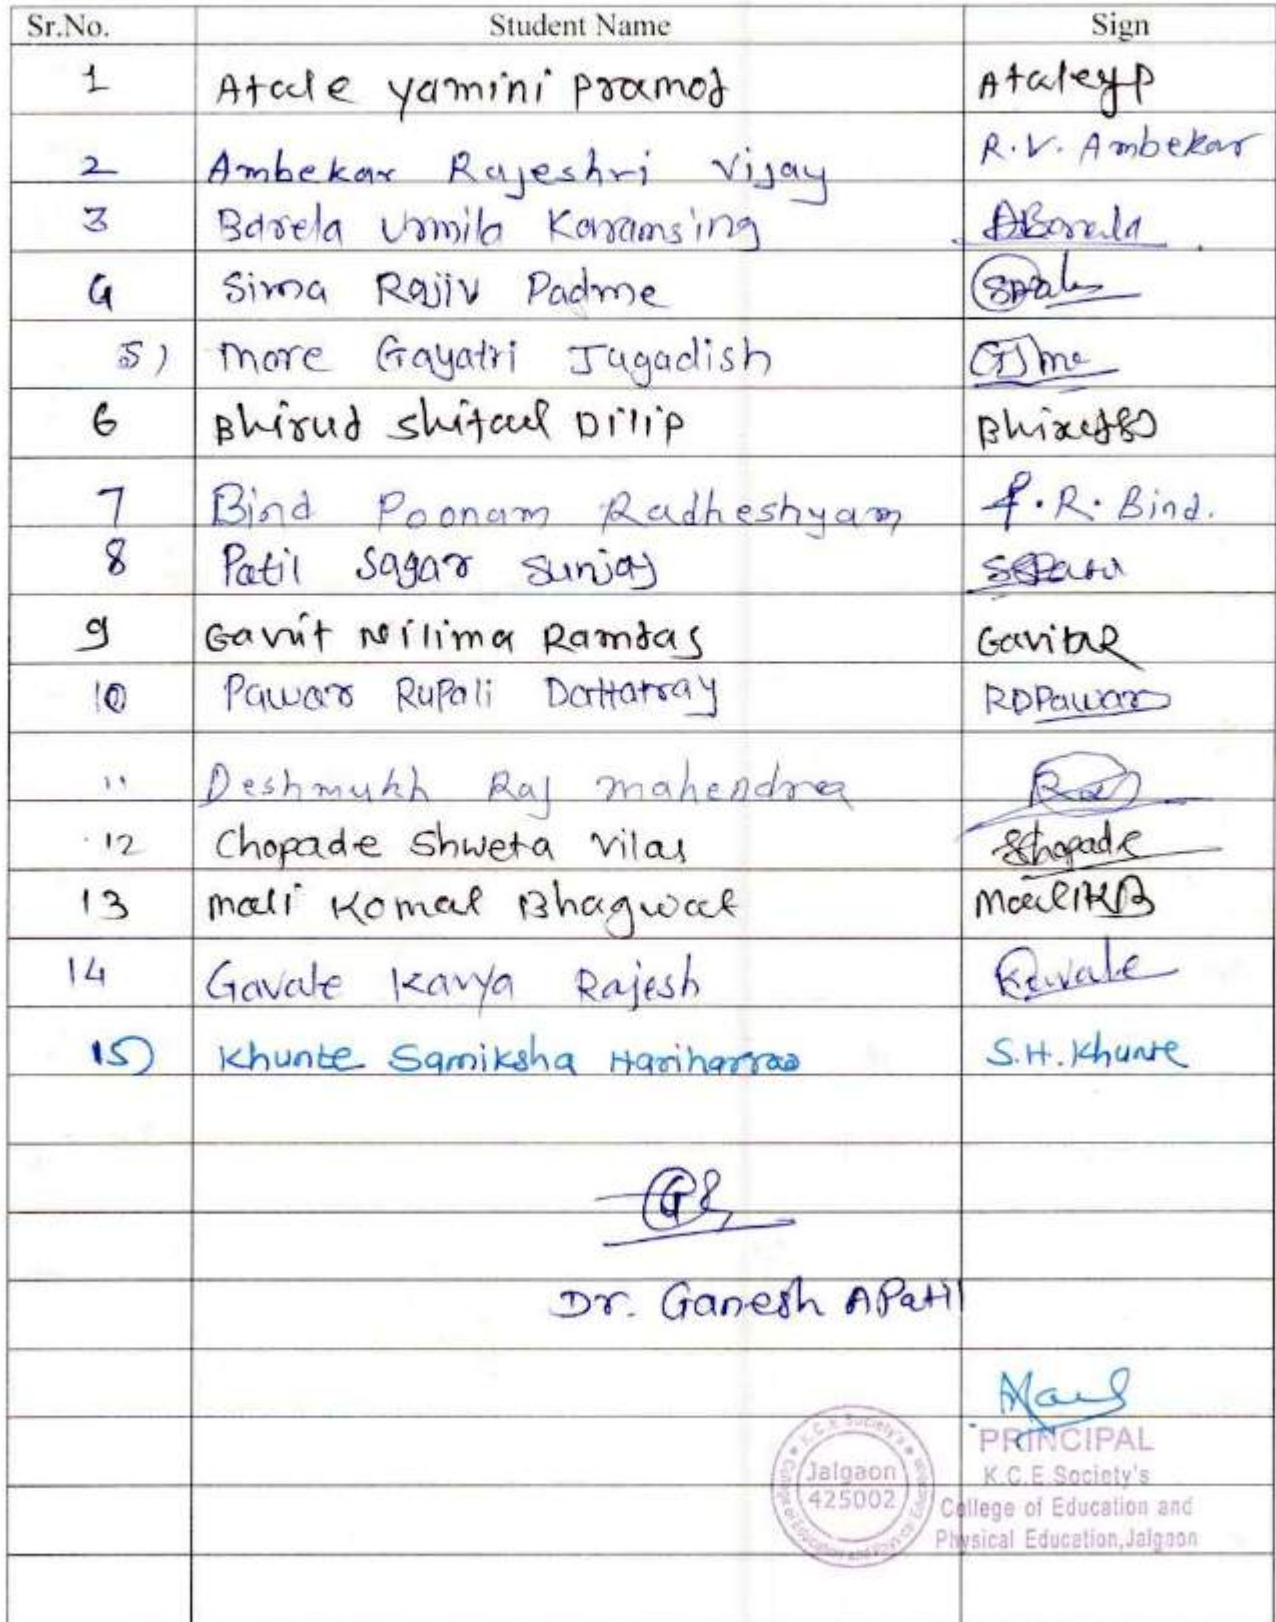 Sr.No. Student Name Sign
1 Atale yamini pramod Ataleyp
2 Ambekar Rajeshri Vijay R.V. Ambekar
3 Barela Urmila Karamsing
4 Sima Rajiv Padme
5) More Gayatri Jagadish
6 Bhirud Shital Dilip
7 Bind Poonam Radheshyam P.R. Bind.
8 Patil Sagar Sunjay
9 Gavit Nilima Ramdas
10 Pawar Rupali Dattatray RDPawar
11 Deshmukh Raj mahendra
12 Chopade Shweta Vilas
13 mali Komal Bhagwat
14 Gavale Kavya Rajesh
15) Khunte Samiksha Hariharrao S.H. Khunte
Dr. Ganesh A Patil
K.C.E. Society's
Jalgaon
425002
College of Education and Physical Education
PRINCIPAL
K.C.E. Society's
College of Education and
Physical Education, Jalgaon